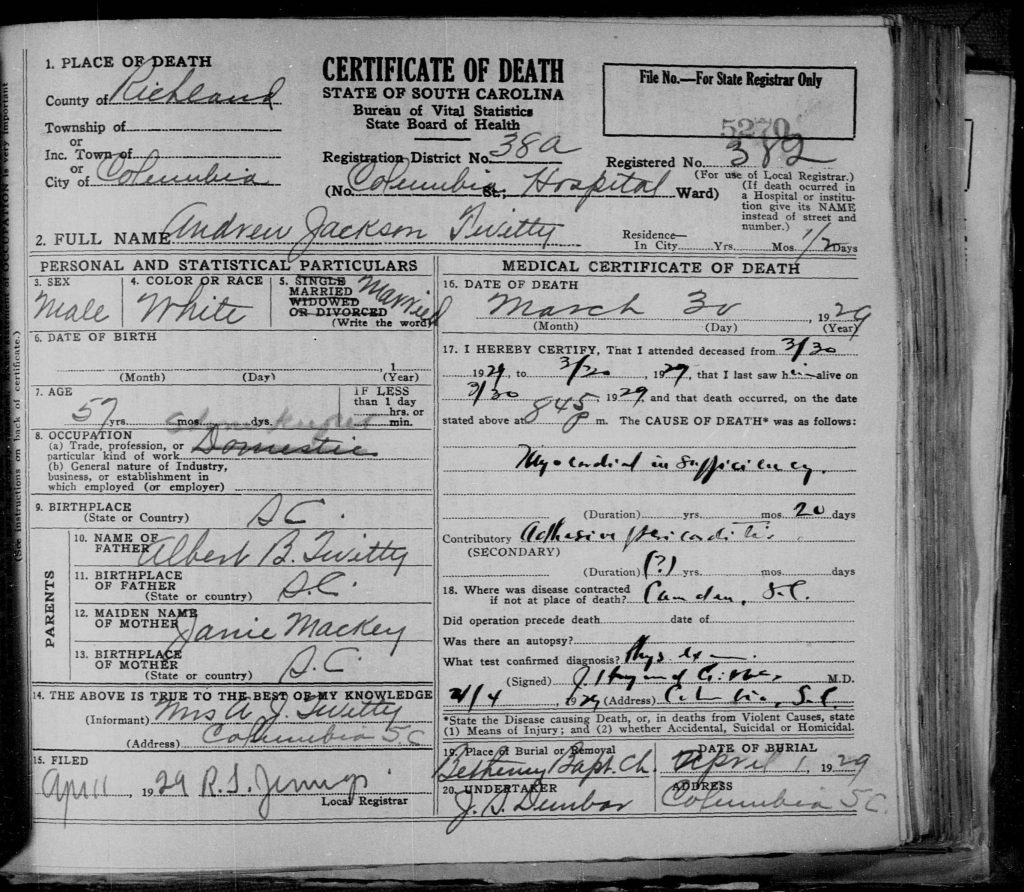 1. PLACE OF DEATH
County of Richland
Township of
or
Inc. Town of
or
City of Columbia
CERTIFICATE OF DEATH
STATE OF SOUTH CAROLINA
Bureau of Vital Statistics
State Board of Health
Registration District No. 38a
(No. Columbia St.; Hospital Ward)
File No.—For State Registrar Only
5270
Registered No. 382
(For use of Local Registrar.)
(If death ocurred in
a Hospital or institu-
tution give its NAME
instead of street and
number.)
2. FULL NAME Andrew Jackson Twitty
Residence—
In City Yrs. Mos. 1/2 Days
PERSONAL AND STATISTICAL PARTICULARS
3. SEX
Male
4. COLOR OR RACE
White
5. SINGLE
MARRIED
WIDOWED
OR DIVORCED
(Write the word)
Married
6. DATE OF BIRTH
1
(Month) (Day) (Year)
7. AGE
57 yrs. mos. dys.
IF LESS
than 1 day
hrs. or
min.
8. OCCUPATION
(a) Trade, profession, or
particular kind of work Domestic
(b) General nature of Industry,
business, or establishment in
which employed (or employer)
9. BIRTHPLACE
(State or Country) S.C.
PARENTS
10. NAME OF
FATHER Albert B. Twitty
11. BIRTHPLACE
OF FATHER
(State or country) S.C
12. MAIDEN NAME
OF MOTHER Janie Mackey
13. BIRTHPLACE
OF MOTHER
(State or country) S.C.
14. THE ABOVE IS TRUE TO THE BEST OF MY KNOWLEDGE
(Informant) Mrs A. J. Twitty
(Address) Columbia S.C
15. FILED
Apr 11, 1929 R.S. Jennings
Local Registrar
MEDICAL CERTIFICATE OF DEATH
16. DATE OF DEATH
March 30, 1929
(Month) (Day) (Year)
17. I HEREBY CERTIFY, That I attended deceased from 3/30
1929, to 3/30, 1929, that I last saw him alive on
3/30 1929 and that death occurred, on the date
stated above at 845 p m. The CAUSE OF DEATH* was as follows:
Myocardial insufficiency.
(Duration) yrs. mos. 20 days
Contributory Adhesive pericarditis
(SECONDARY)
(Duration) (?) yrs. mos. days
18. Where was disease contracted
if not at place of death? Camden, S.C.
Did operation precede death date of
Was there an autopsy?
What test confirmed diagnosis? Phys exam.
(Signed) J. Heyward Gibbes M.D.
4/4, 1929 (Address) Columbia, S.C.
*State the Disease causing Death, or, in deaths from Violent Causes, state
(1) Means of Injury; and (2) whether Accidental, Suicidal or Homicidal.
19. Place of Burial or Removal
Bethany Bapt. Ch.
DATE OF BURIAL
April 1, 1929
20. UNDERTAKER
J. S. Dunbar
ADDRESS
Columbia S.C.
(See instructions on back of certificate.)
OF OCCUPATION is very important